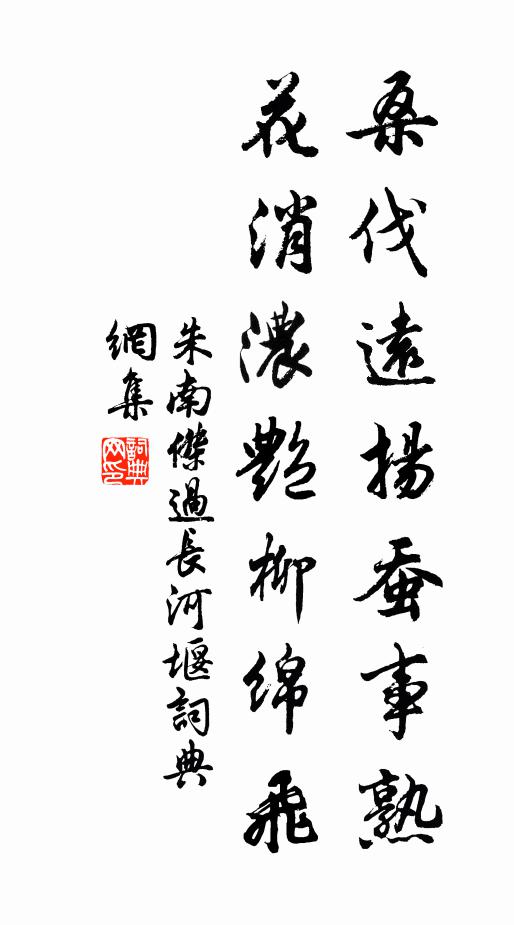 桑伐遠揚蚕事熟
花消濃艷柳綿飛
朱南傑過長河堰詞典
網集
詞典網印